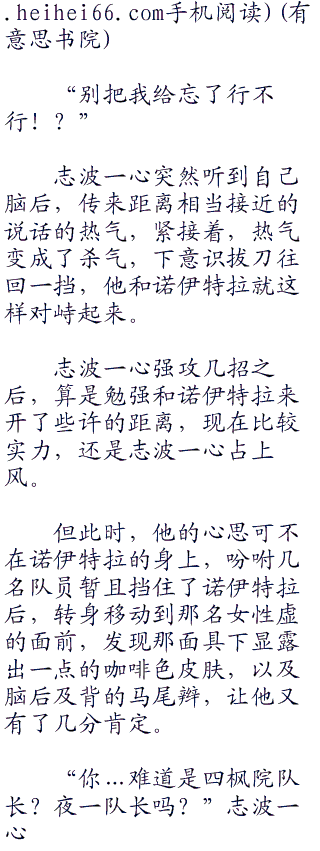 .heihei66.com手机阅读)(有
意思书院)
“别把我给忘了行不
行!?”
志波一心突然听到自己
脑后，传来距离相当接近的
说话的热气，紧接着，热气
变成了杀气，下意识拔刀往
回一挡，他和诺伊特拉就这
样对峙起来。
志波一心强攻几招之
后，算是勉强和诺伊特拉来
开了些许的距离，现在比较
实力，还是志波一心占上
风。
但此时，他的心思可不
在诺伊特拉的身上，吩咐几
名队员暂且挡住了诺伊特拉
后，转身移动到那名女性虚
的面前，发现那面具下显露
出一点的咖啡色皮肤，以及
脑后及背的马尾辫，让他又
有了几分肯定。
“你…难道是四枫院队
长？夜一队长吗？”志波一
心